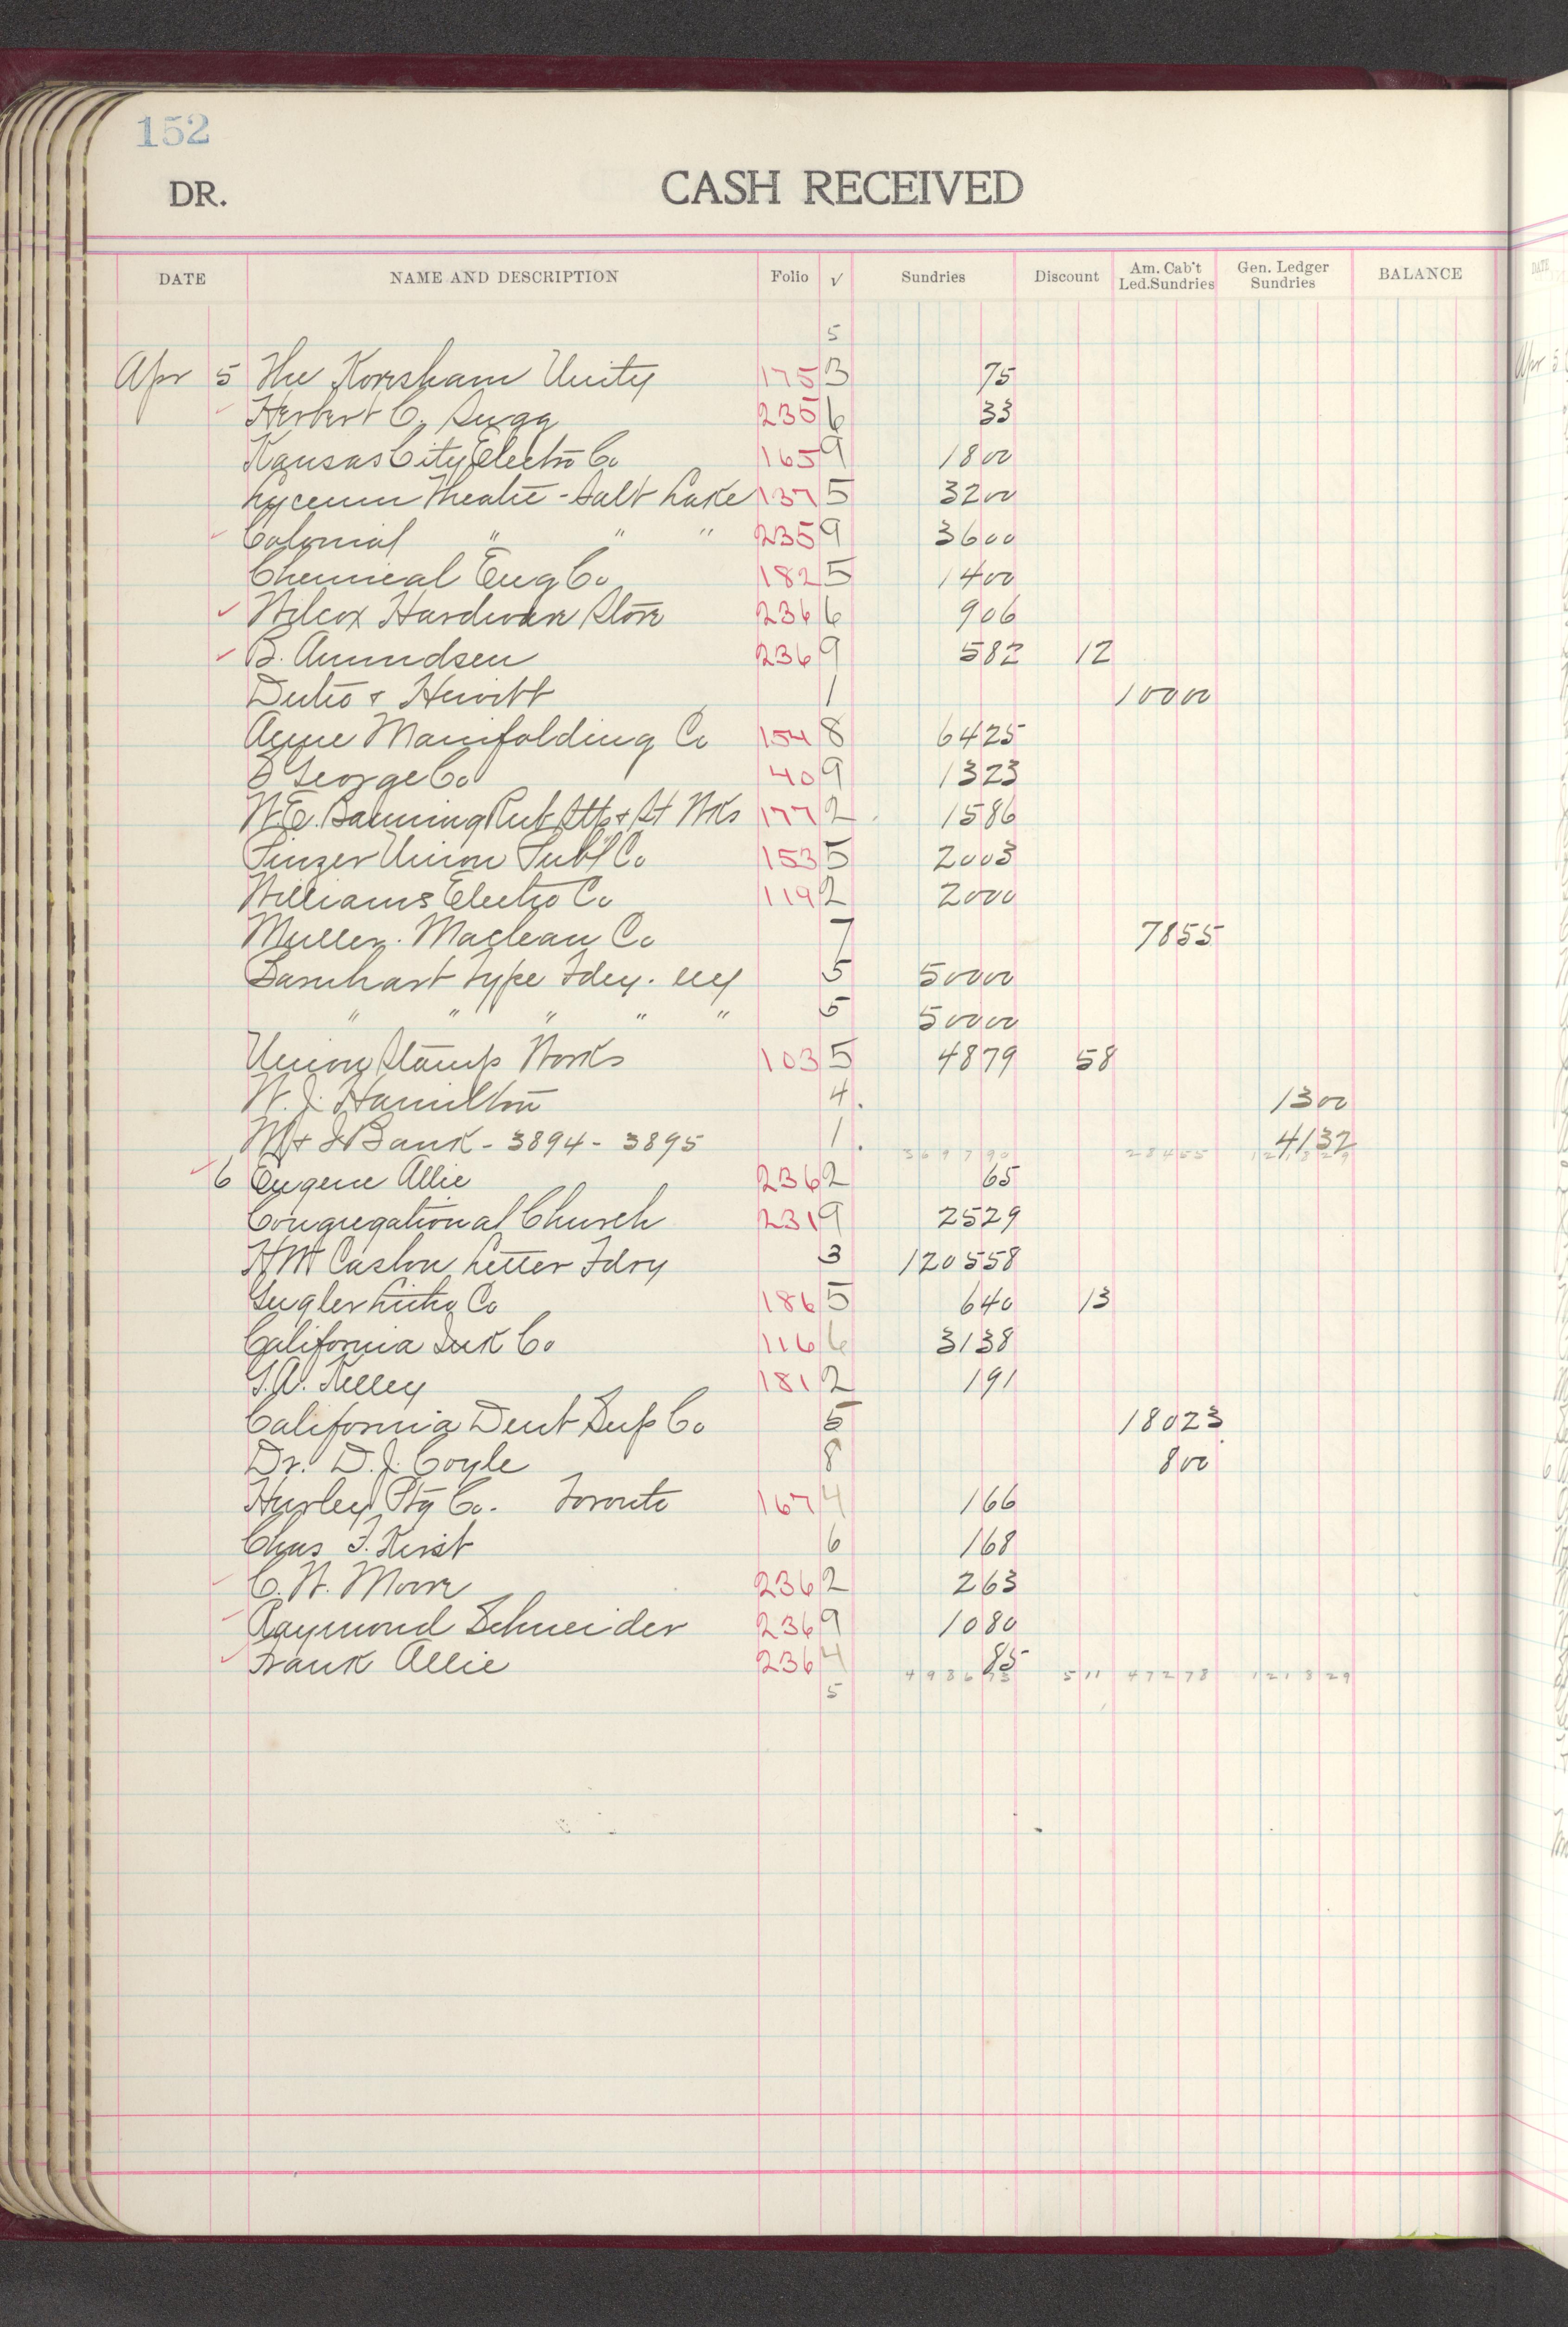 152
DR. CASH RECEIVED
DATE NAME AND DESCRIPTION Folio √ Sundries Discount Am. Cab't Led.Sundries Gen. Ledger Sundries BALANCE
5
Apr 5 The Koresham Unity 175 3 75
Herbert C. Sugg 235 6 33
Kansas City Electro Co 165 9 1800
Lyceum Theatre - Salt Lake 137 5 3200
Colonial " " " 235 9 3600
Chemical Eng Co 182 5 1400
Wilcox Hardware Store 236 6 906
B. Amundsen 236 9 582 12
& Hewitt 1 10000
Acme Manifolding Co 154 8 6425
George Co 40 9 1323
W.E. Banning Rub Stp & St Wks 177 2 1586
Union Publ Co 153 5 2003
Williams Electro Co 119 2 2000
Muller. Maclean Co 7 7855
Barnhart Type Fdry. 5 50000
" " " " " 5 50000
Union Stamp Works 103 5 4879 58
W. J. Hamilton 4. 1300
M & I Bank - 3894 - 3895 1. 4132
369790 28455 121829
6 Eugene Allie 236 2 65
Congregational Church 231 9 2529
H W Caslon Letter Fdry 3 120558
Gugler Litho Co 186 5 640 13
California Ink Co 116 6 3138
G.A. Kelley 181 2 191
California Dent Sup Co 5 18023
Dr. D.J. Coyle 8 800
Hurley Ptg Co. Toronto 167 4 166
Chas F. Kirst 6 168
C. W. Moore 236 2 263
Raymond Schneider 236 9 1080
Frank Allie 236 4 85
498673 511 47278 121829
5